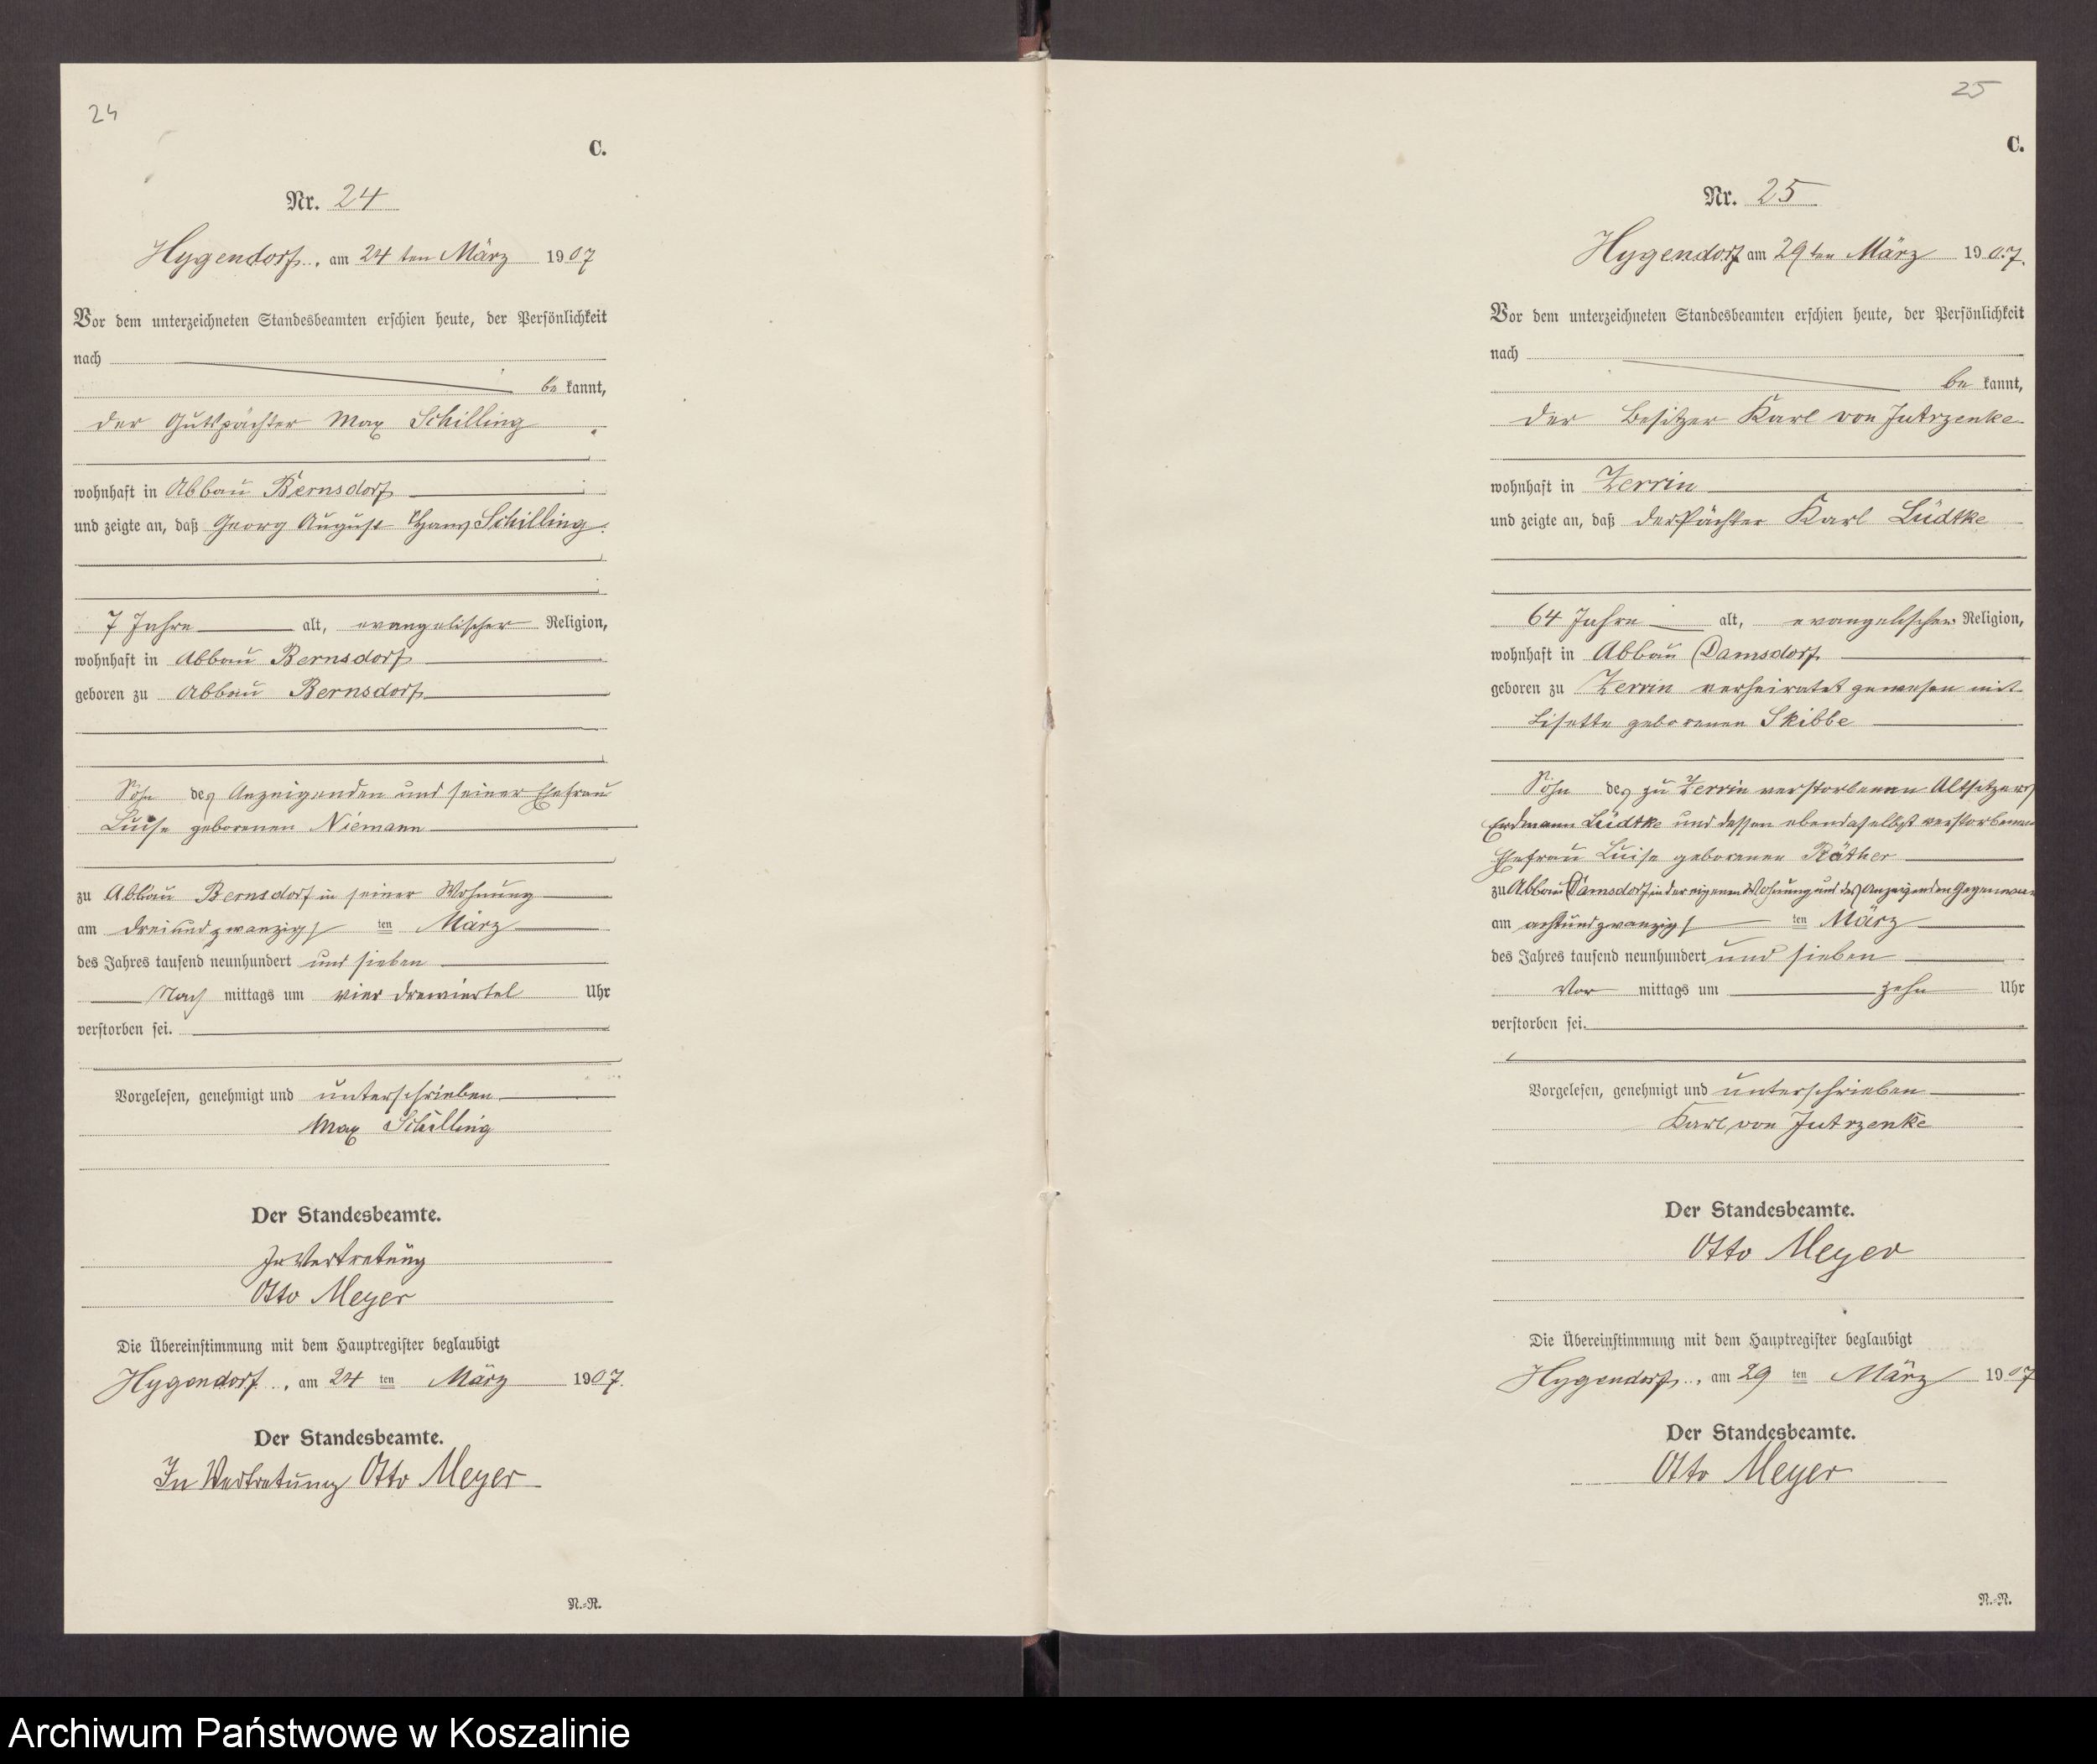 24
C.
Nr. 24
Hygendorf, am 24 ten März 1907
Vor dem unterzeichneten Standesbeamten erschien heute, der Persönlichkeit
nach
be kannt,
der Gutspächter Max Schilling
wohnhaft in Abbau Bernsdorf
und zeigte an, daß Georg August Hans Schilling
7 Jahre alt, evangelischer Religion,
wohnhaft in Abbau Bernsdorf
geboren zu Abbau Bernsdorf
Sohn des Anzeigenden und seiner Ehefrau
Luise geborenen Niemann
zu Abbau Bernsdorf in seiner Wohnung
am dreiundzwanzigs ten März
des Jahres tausend neunhundert und sieben
Nach mittags um vier dreiviertel Uhr
verstorben sei.
Vorgelesen, genehmigt und unterschrieben
Max Schilling
Der Standesbeamte.
In Vertretung
Otto Meyer
Die Übereinstimmung mit dem Hauptregister beglaubigt
Hygendorf, am 24 ten März 1907.
Der Standesbeamte.
In Vertretung Otto Meyer
N.-R.
25
C.
Nr. 25
Hygendorf am 29 ten März 1907.
Vor dem unterzeichneten Standesbeamten erschien heute, der Persönlichkeit
nach
be kannt,
der Besitzer Karl von Jutrzenke
wohnhaft in Zerrin
und zeigte an, daß der Pächter Karl Lüdtke
64 Jahre alt, evangelischer Religion,
wohnhaft in Abbau Damsdorf
geboren zu Zerrin verheiratet gewesen mit
Lisette geborenen Skibbe
Sohn des zu Zerrin verstorbenen Altsitzers
Erdmann Lüdtke und dessen ebendaselbst verstorbenen
Ehefrau Luise geborenen Räther
zu Abbau Damsdorf in der eigenen Wohnung und des Anzeigenden Gegenwart
am achtundzwanzigs ten März
des Jahres tausend neunhundert und sieben
Vor mittags um zehn Uhr
verstorben sei.
Vorgelesen, genehmigt und unterschrieben
Karl von Jutrzenke
Der Standesbeamte.
Otto Meyer
Die Übereinstimmung mit dem Hauptregister beglaubigt
Hygendorf, am 29 ten März 1907
Der Standesbeamte.
Otto Meyer
N.-R.
Archiwum Państwowe w Koszalinie